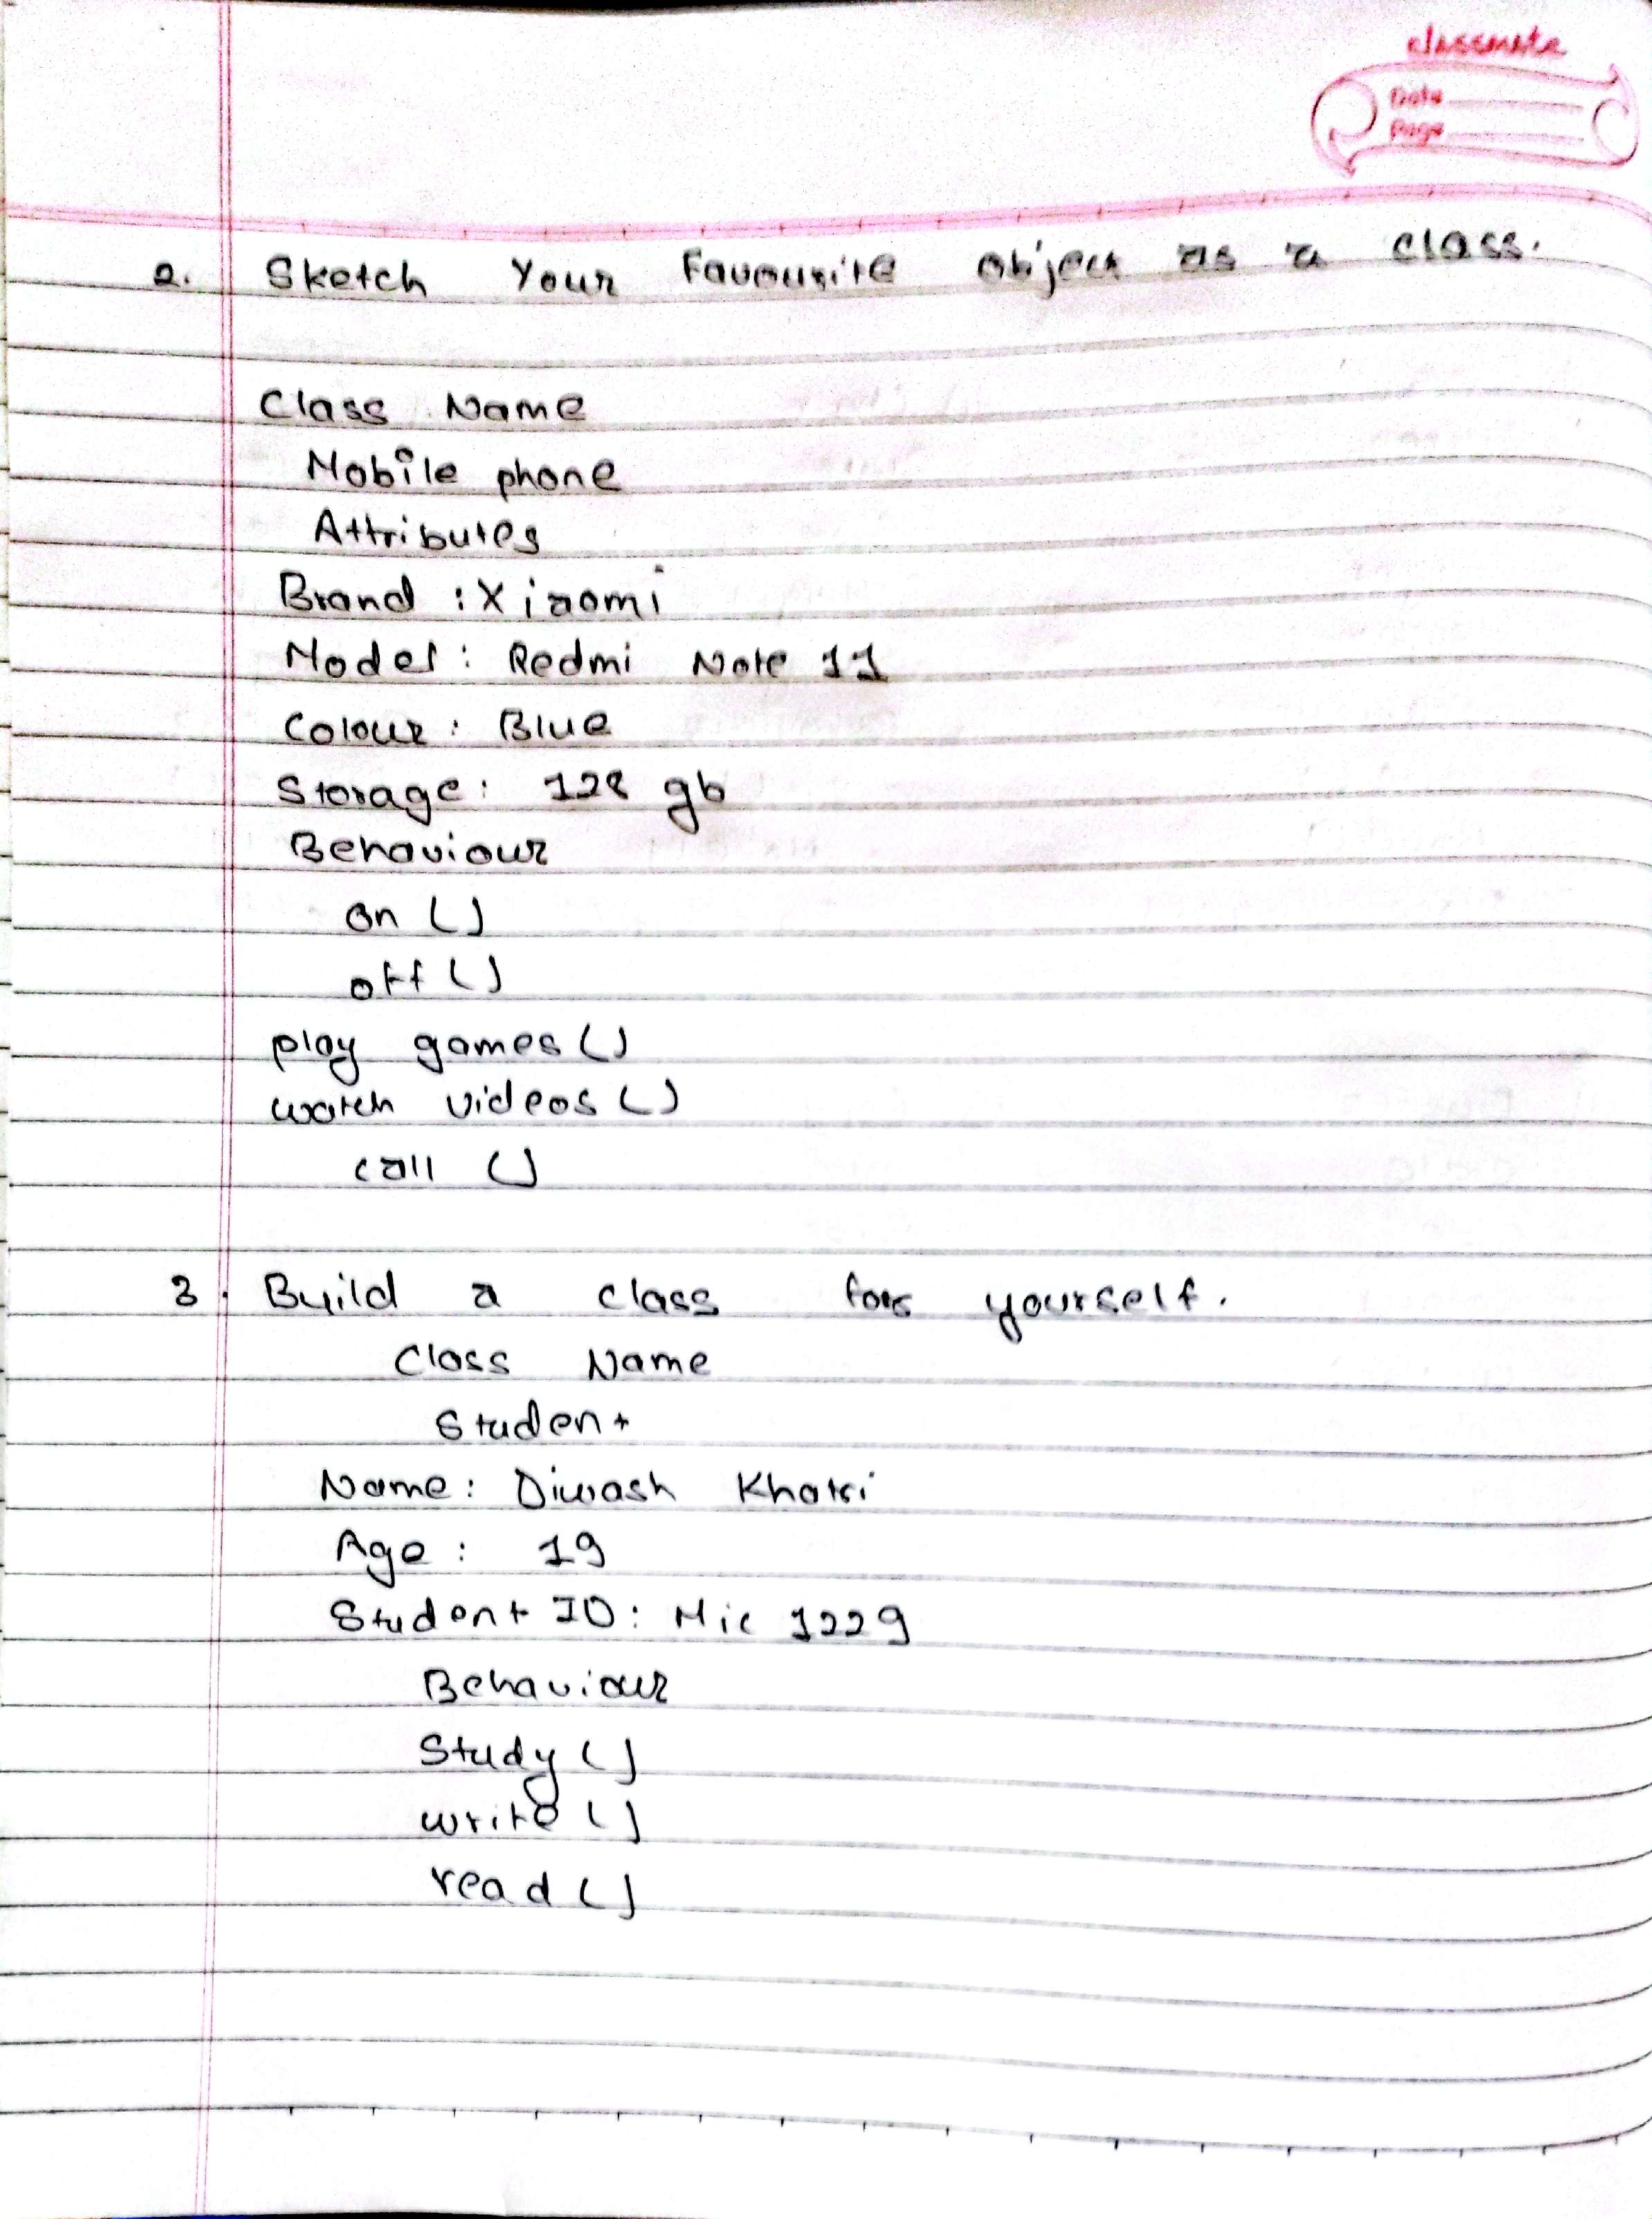 classmate
Date
Page
2. Sketch Your Favourite object as a class.
Class Name
Mobile phone
Attributes
Brand : Xiaomi
Model : Redmi Note 11
Colour : Blue
Storage : 128 gb
Behaviour
on ()
off ()
play games ()
watch videos ()
call ()
3. Build a class for yourself.
Class Name
Student
Name : Diwash Khatri
Age : 19
Student ID : Mic 1229
Behaviour
Study ()
write ()
read ()